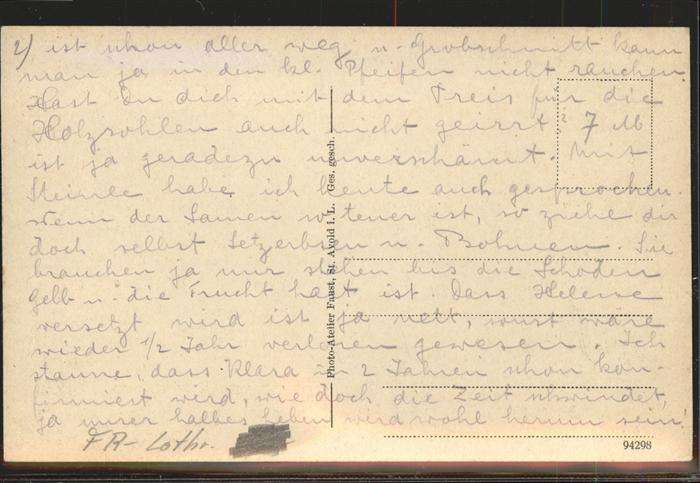 2) ist schon aller weg u. Grobschnitt kann
man ja in den kl. Pfeifen nicht rauchen
Hast Du dich mit dem Preis für die
Holzsohlen auch nicht geirrt? 7 M
ist ja geradezu unverschämt. Mit
habe ich heute auch gesprochen.
Wenn der Samen so teuer ist, so ziehe dir
doch selbst Setzerbsen u. Bohnen. Sie
brauchen ja nur stehen bis die Schoden
gelb u. die Frucht hart ist. Dass Helene
versetzt wird ist ja nett, sonst wäre
wieder 1/2 Jahr verloren gewesen. Ich
staune, dass Klara in 2 Jahren schon kon-
firmiert wird, wie doch die Zeit schwindet,
ja unser halbes Leben wird wohl herum sein.
FR- Lothr.
Photo-Atelier Faust, St. Avold i. L. Ges. gesch.
94298